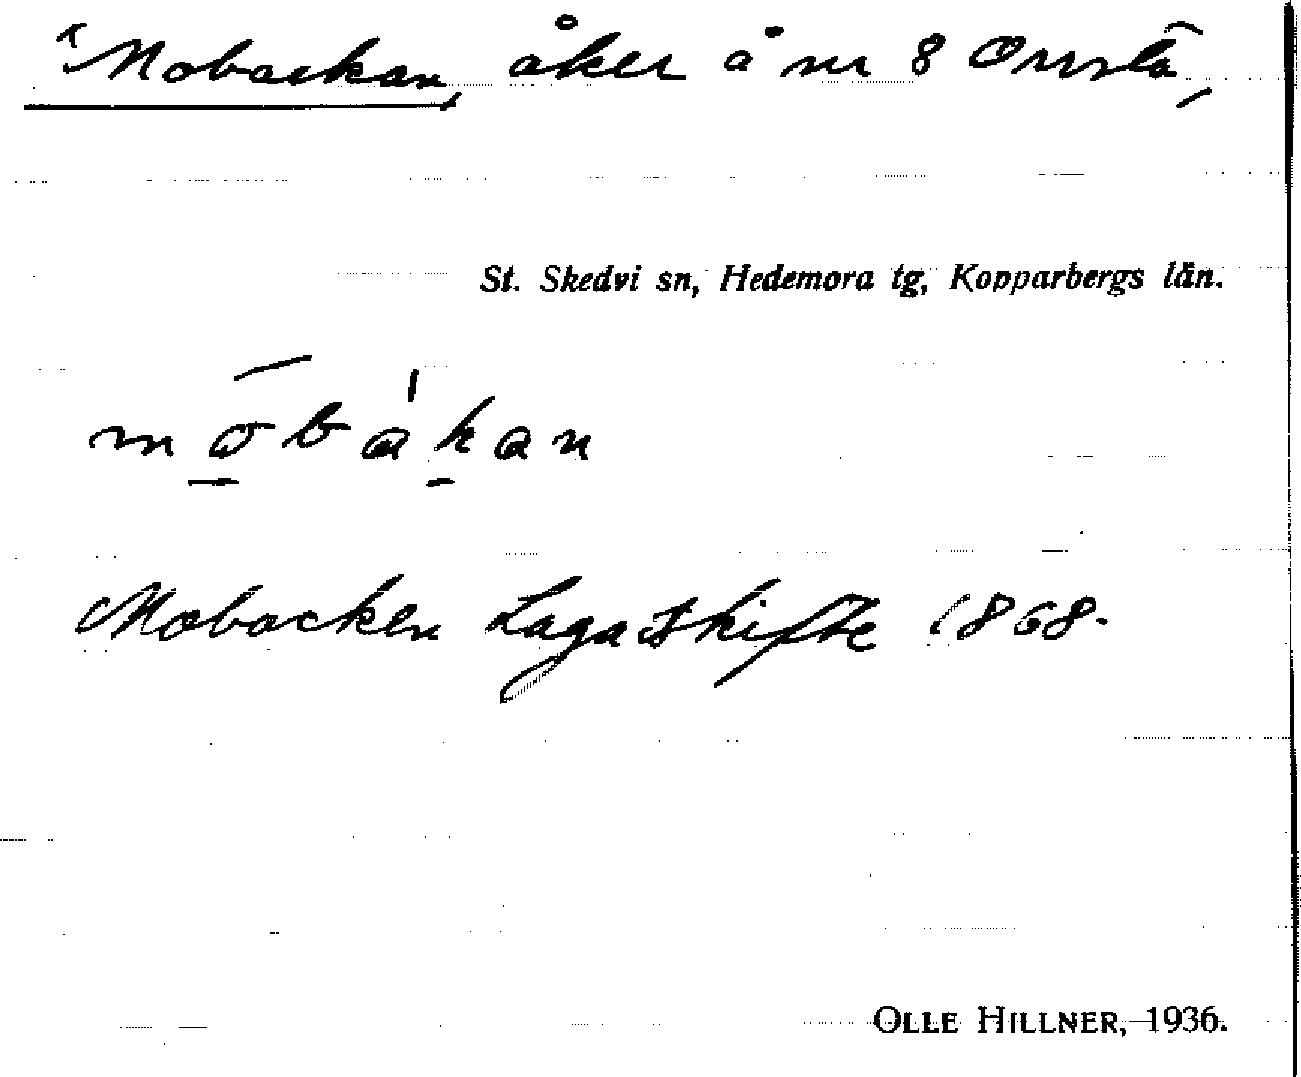 Mobackan, åker å nr 8 Onsta,
St. Skedvi sn, Hedemora tg, Kopparbergs län.
mobakan
Mobacken Laga skifte 1868.
OLLE HILLNER, 1936.